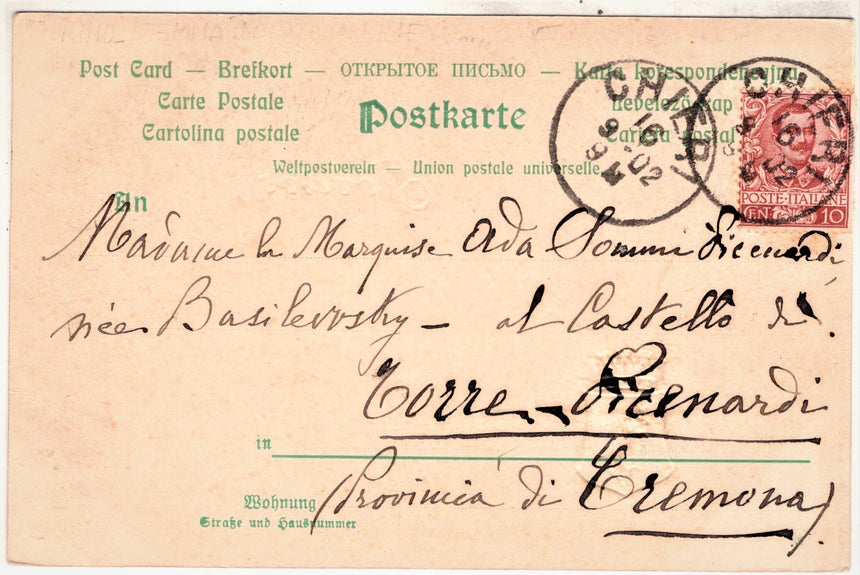 Post Card — Brefkort — ОТКРЫТОЕ ПИСЬМО — Karta korespondencyjna
Carte Postale
Postkarte
Cartolina postale
Weltpostverein — Union postale universelle
CHIERI
16
9 02
9 M
CHIERI
16
02
POSTE ITALIANE
CENT 10
An
Madame la Marquise Ada Sommi Picenardi
née Basilevsky — al Castello di
Torre-Picenardi
in
(Provincia di Cremona)
Wohnung
Straße und Hausnummer